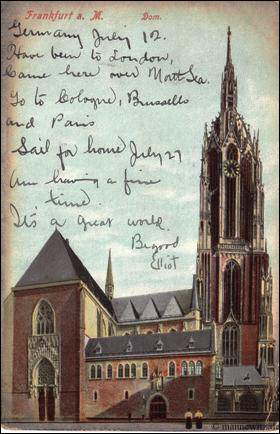 Frankfurt a. M. Dom.
Germany July 12.
Have been to London,
Came here over North Sea.
Go to Cologne, Brussells
and Paris
Sail for home July 27
Am having a fine
time.
It's a great world.
Be good
Elliot